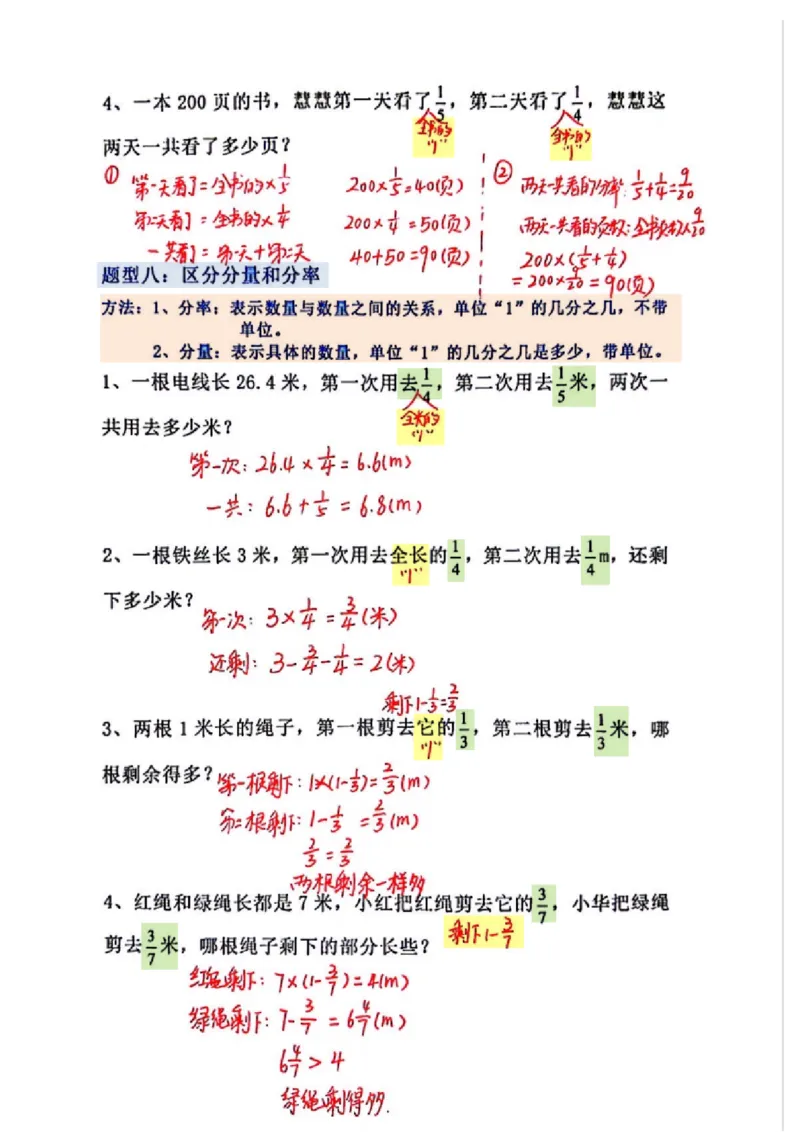 4、一本 200 页的书，慧慧第一天看了1/5，第二天看了1/4，慧慧这
全书的 "1"
全书的 "1"
两天一共看了多少页？
① 第一天看了=全书的×1/5 200×1/5=40(页)
第二天看了=全书的×1/4 200×1/4=50(页)
一共看了=第一天+第二天 40+50=90(页)
② 两天一共看的分率:1/5+1/4=9/20
两天一共看的页数:全书页数×9/20
200×(1/5+1/4)
=200×9/20=90(页)
题型八：区分分量和分率
方法：1、分率：表示数量与数量之间的关系，单位“1”的几分之几，不带
单位。
2、分量：表示具体的数量，单位“1”的几分之几是多少，带单位。
1、一根电线长 26.4 米，第一次用去1/4，第二次用去1/5米，两次一
全长的 "1"
共用去多少米？
第一次：26.4×1/4=6.6(m)
一共：6.6+1/5=6.8(m)
2、一根铁丝长 3 米，第一次用去全长的1/4，第二次用去1/4m，还剩
"1"
下多少米？
第一次：3×1/4=3/4(米)
还剩：3-3/4-1/4=2(米)
剩下1-1/3=2/3
3、两根 1 米长的绳子，第一根剪去它的1/3，第二根剪去1/3米，哪
"1"
根剩余得多？
第一根剩下：1×(1-1/3)=2/3(m)
第二根剩下：1-1/3=2/3(m)
2/3=2/3
两根剩余一样多
4、红绳和绿绳长都是 7 米，小红把红绳剪去它的3/7，小华把绿绳
剩下1-3/7
剪去3/7米，哪根绳子剩下的部分长些？
红绳剩下：7×(1-3/7)=4(m)
绿绳剩下：7-3/7=6 4/7(m)
6 4/7>4
绿绳剩得多.